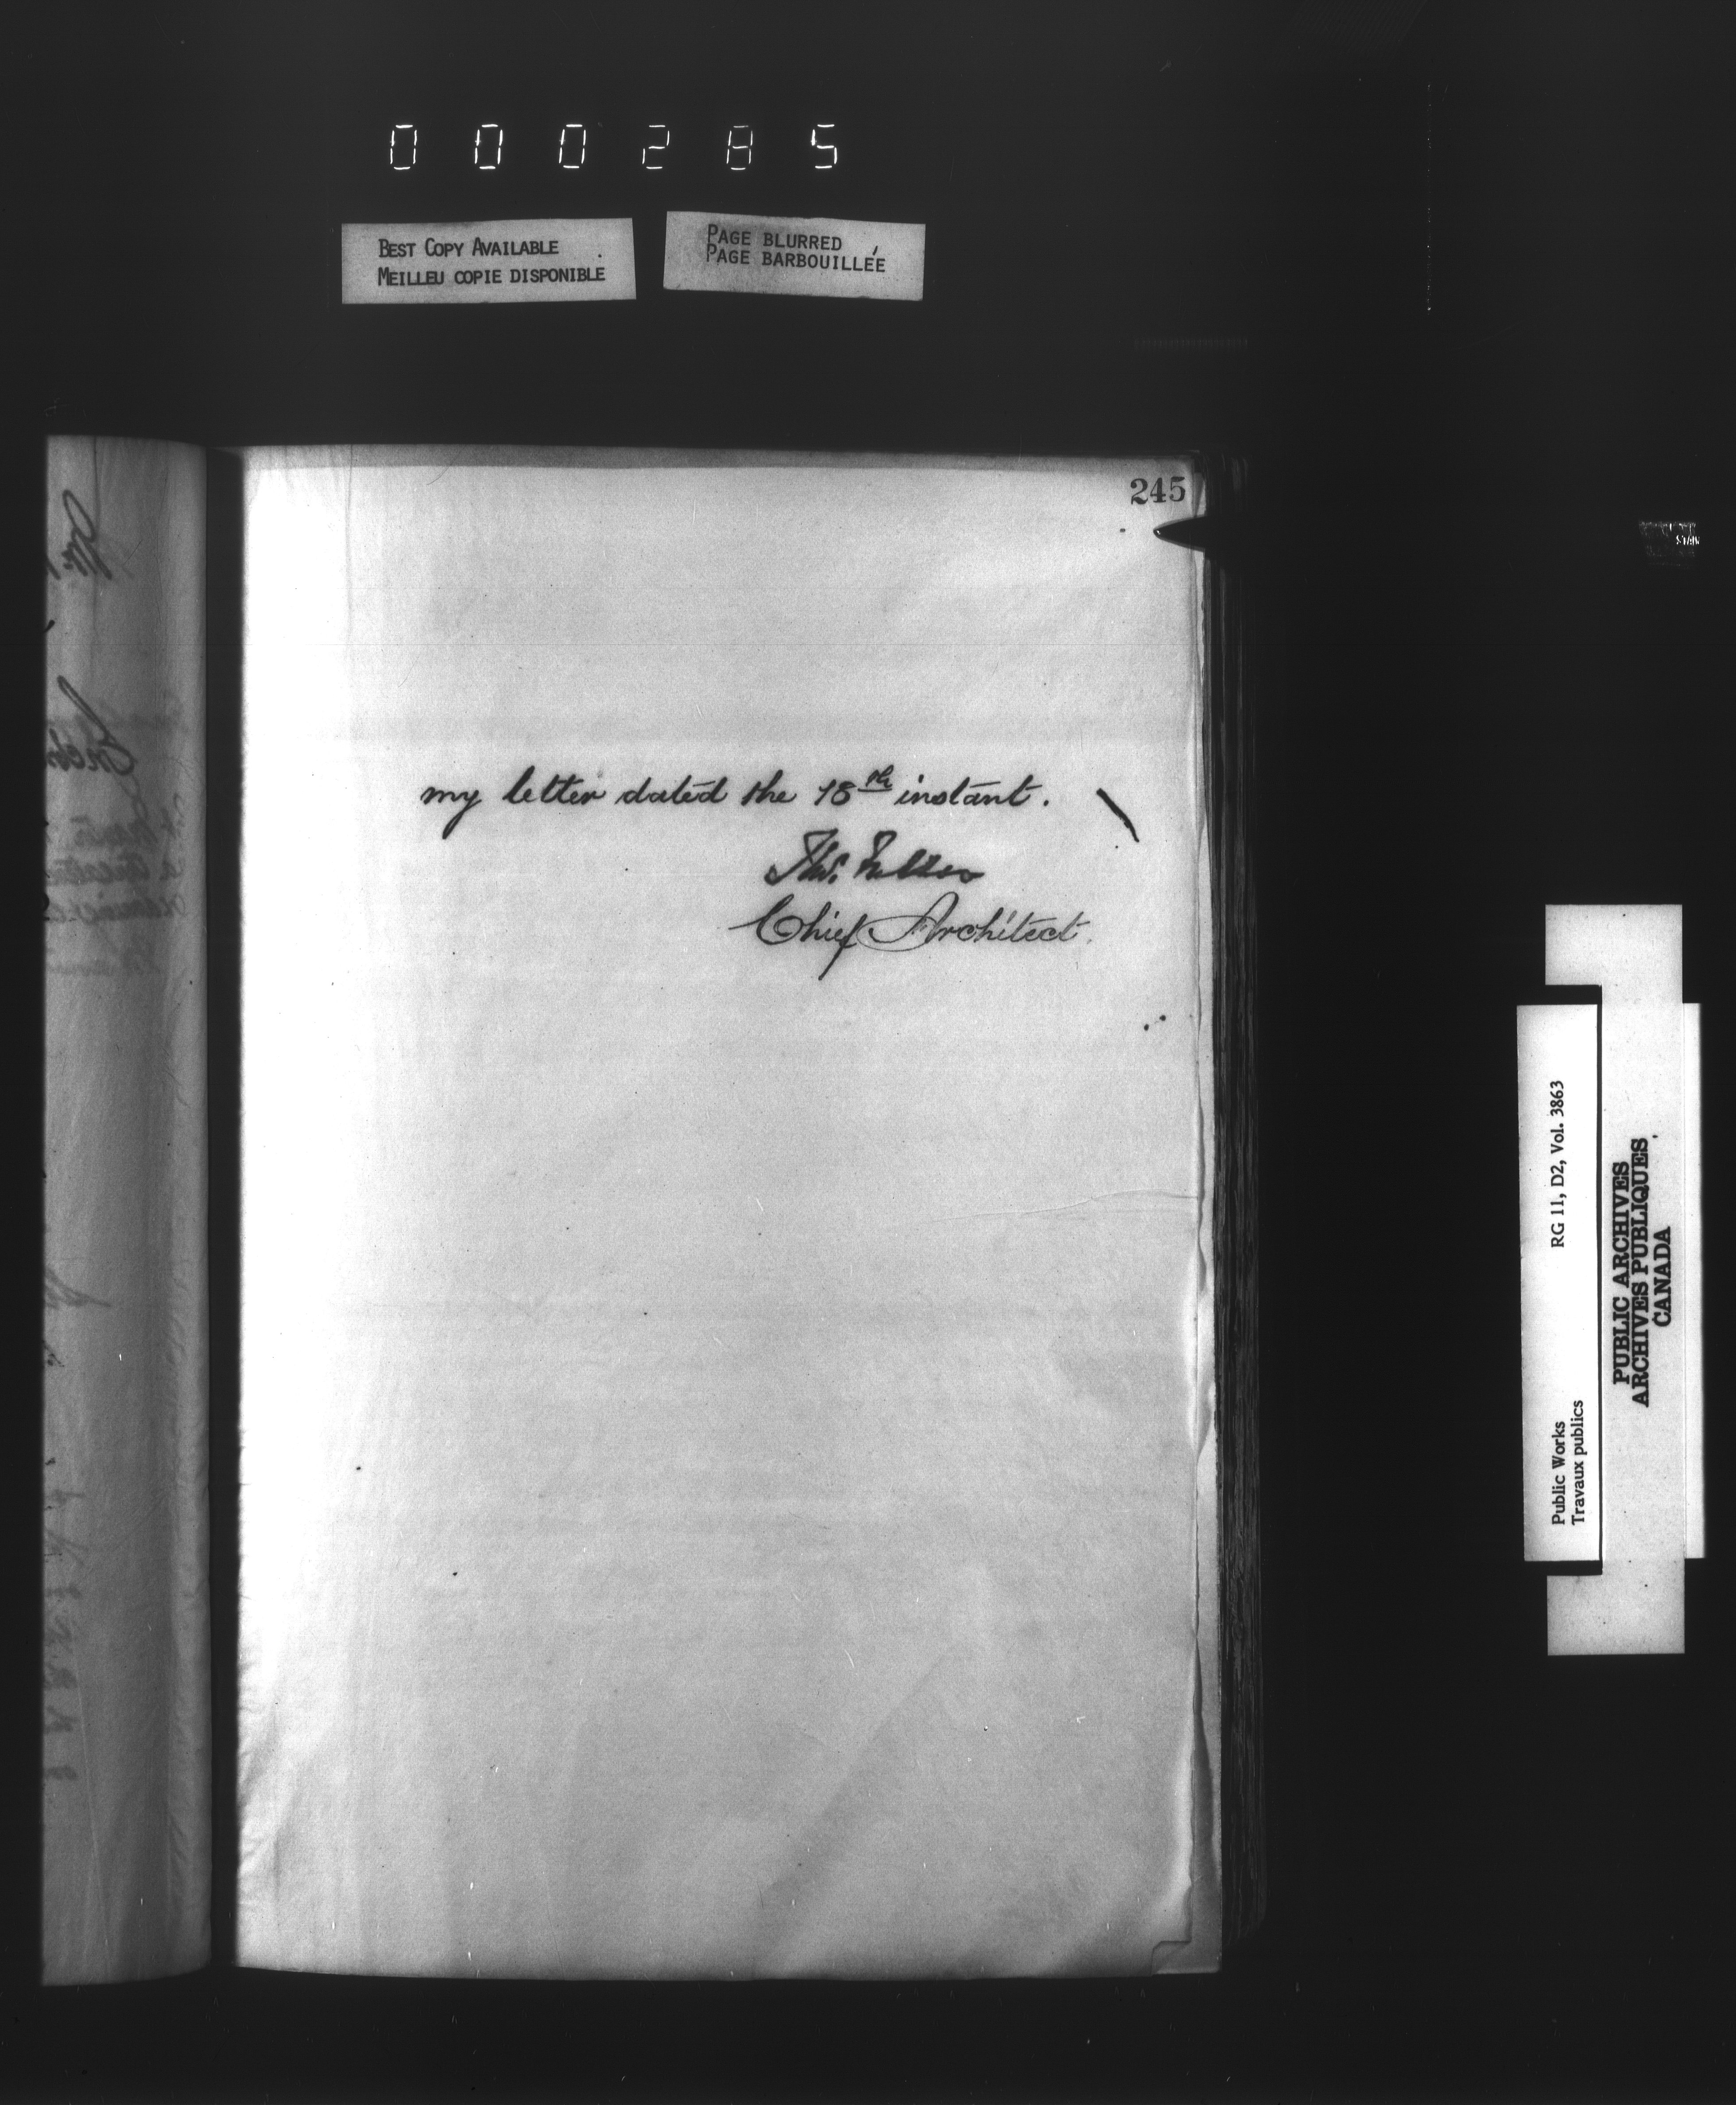 000285
BEST COPY AVAILABLE
MEILLEU COPIE DISPONIBLE
PAGE BLURRED
PAGE BARBOUILLÉE
245
my letter dated the 18th instant.
Thos. Fuller
Chief Architect.
Public Works
Travaux publics
RG 11, D2, Vol. 3863
PUBLIC ARCHIVES
ARCHIVES PUBLIQUES
CANADA